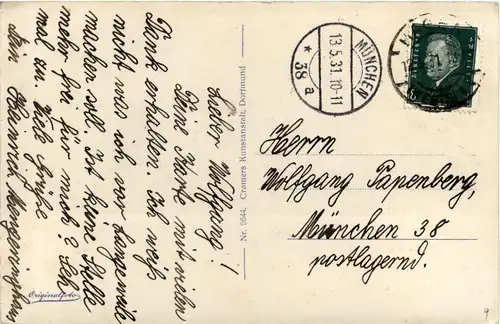 Lieber Wolfgang!
Deine Karte mit vielen
Dank erhalten. Ich weiß
nicht was ich vor Langeweile
machen soll. Ist keine Stelle
mehr frei für mich? Schr
mal zu. Viele Grüße
Dein Heinrich
Originalfoto
Nr. 5644. Cramers Kunstanstalt, Dortmund
MÜNCHEN
13.5.31.10-11
* 38 a
Herrn
Wolfgang Papenberg,
München 38
postlagernd.
9